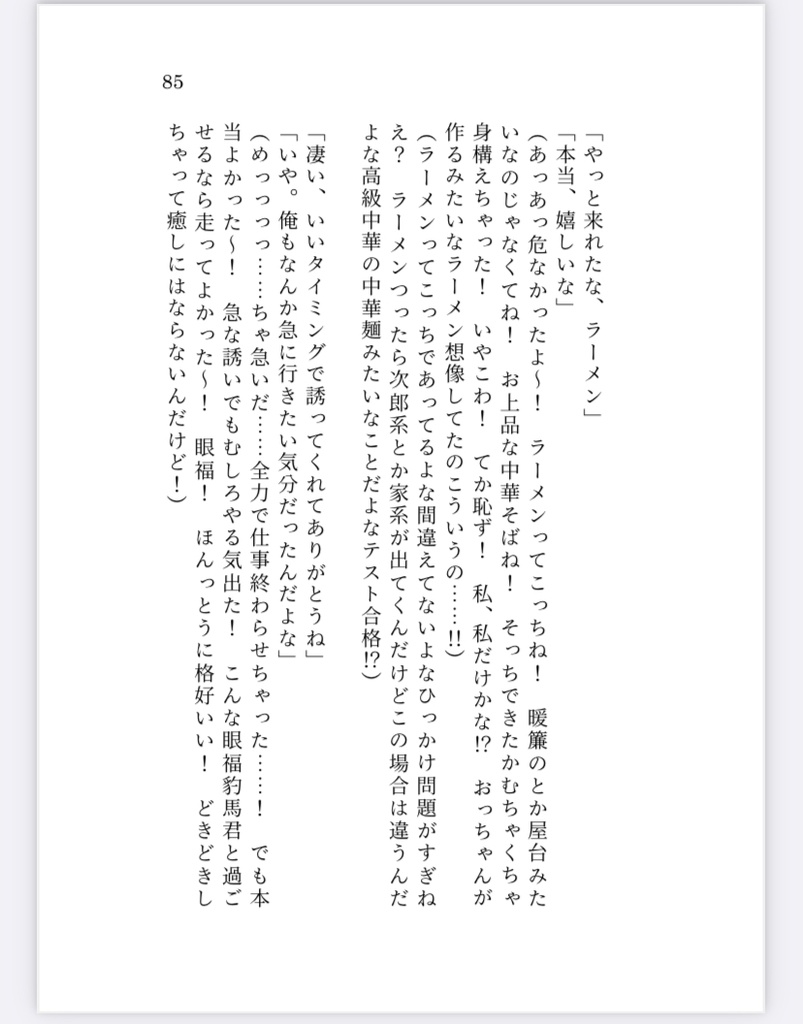 85
「やっと来れたな、ラーメン」
「本当、嬉しいな」
(あっあっ危なかったよ〜!　ラーメンってこっちね!　暖簾のとか屋台みた
いなのじゃなくてね!　お上品な中華そばね!　そっちできたかむちゃくちゃ
身構えちゃった!　いやこわ!　てか恥ず!　私、私だけかな!?　おっちゃんが
作るみたいなラーメン想像してたのこういうの……!!)
(ラーメンってこっちであってるよな間違えてないよなひっかけ問題がすぎね
え?　ラーメンつったら次郎系とか家系が出てくんだけどこの場合は違うんだ
よな高級中華の中華麺みたいなことだよなテスト合格!?)
「凄い、いいタイミングで誘ってくれてありがとうね」
「いや。俺もなんか急に行きたい気分だったんだよな」
(めっっっっ……ちゃ急いだ……全力で仕事終わらせちゃった……!　でも本
当よかった〜!　急な誘いでもむしろやる気出た!　こんな眼福豹馬君と過ご
せるなら走ってよかった〜!　眼福!　ほんっとうに格好いい!　どきどきし
ちゃって癒しにはならないんだけど!)